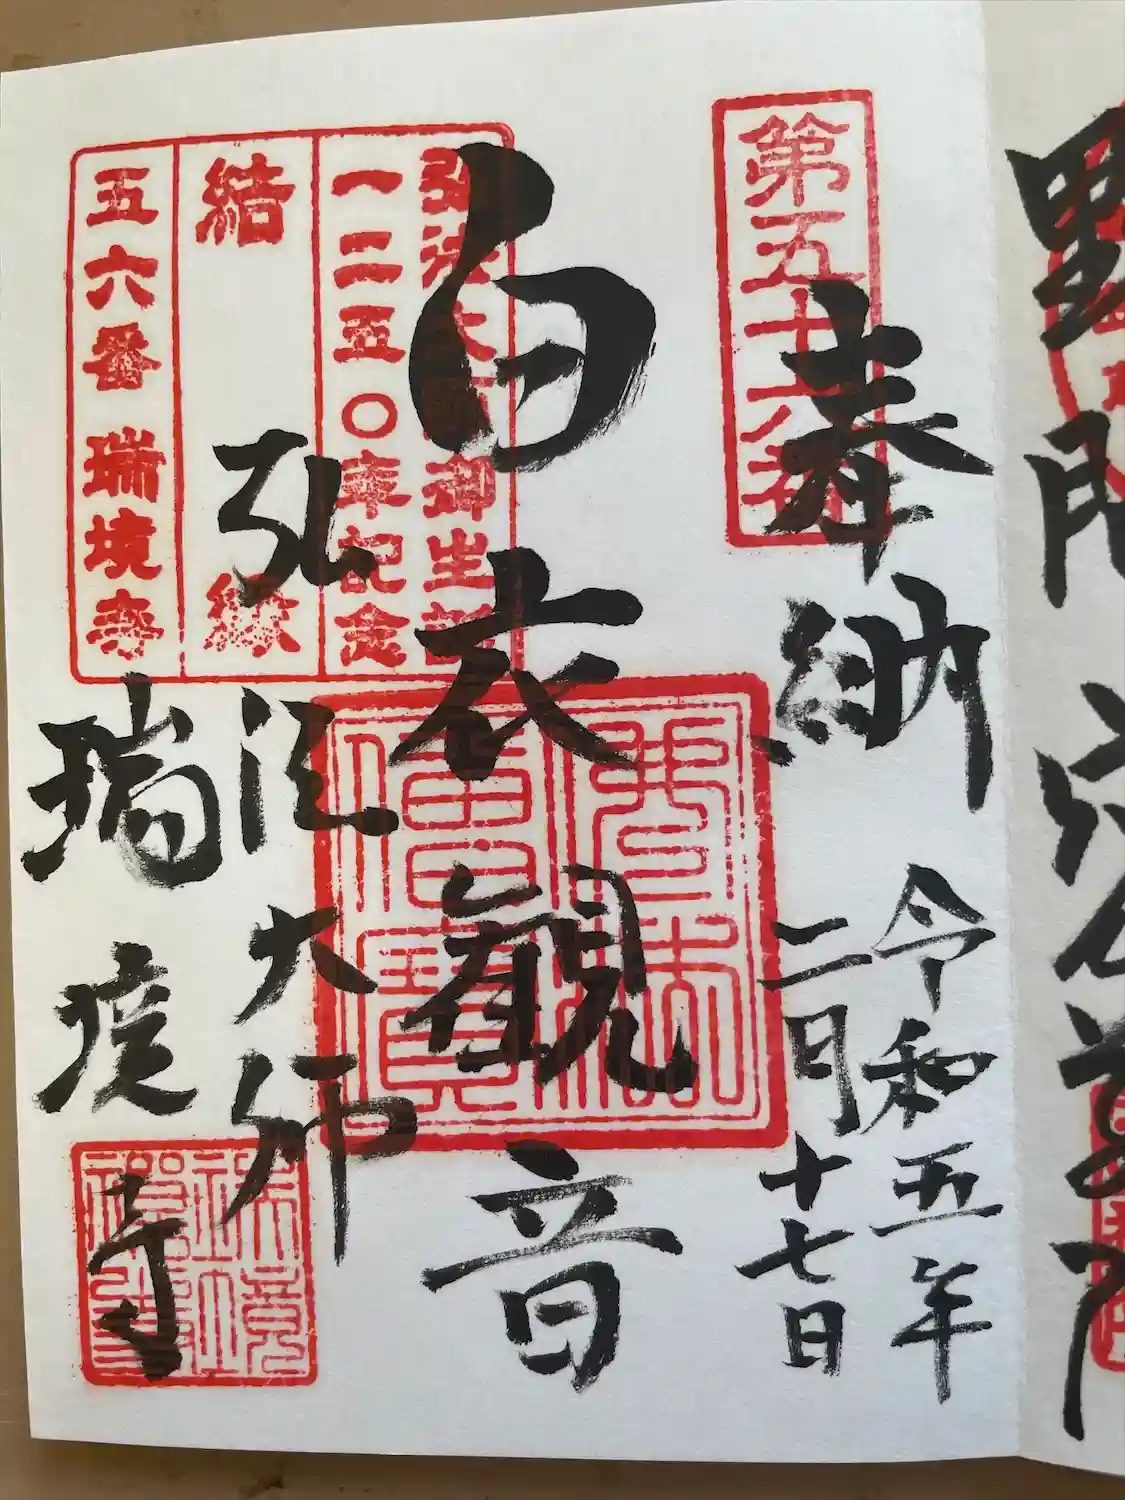 奉納
令和五年
二月十七日
白衣観音
弘法大師
瑞境寺
第五十六番
弘法大師御生誕
一二五〇年記念
結縁
五六番 瑞境寺
佛法僧寳